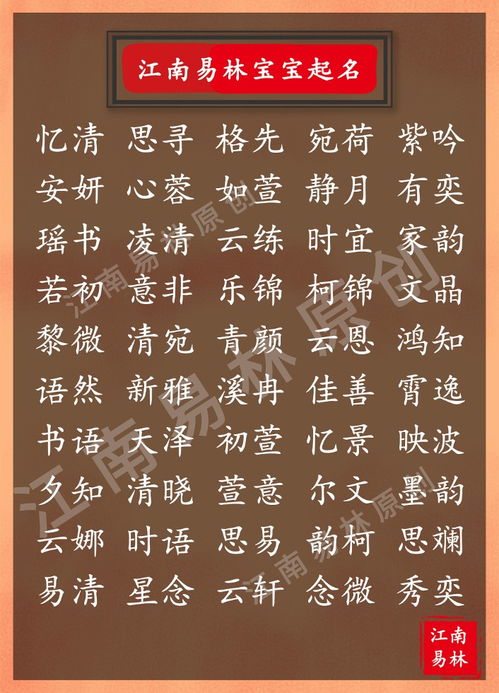 江南易林宝宝起名
忆清 思寻 格先 宛荷 紫吟
安妍 心蓉 如萱 静月 有奕
瑶书 凌清 云练 时宜 家韵
若初 意非 乐锦 柯锦 文晶
黎微 清宛 青颜 云恩 鸿知
语然 新雅 溪冉 佳善 霄逸
书语 天泽 初萱 忆景 映波
夕知 清晓 萱意 尔文 墨韵
云娜 时语 思易 韵柯 思斓
易清 星念 云轩 念微 秀奕
江南易林原创
江南易林原创
江南易林原创
江南
易林